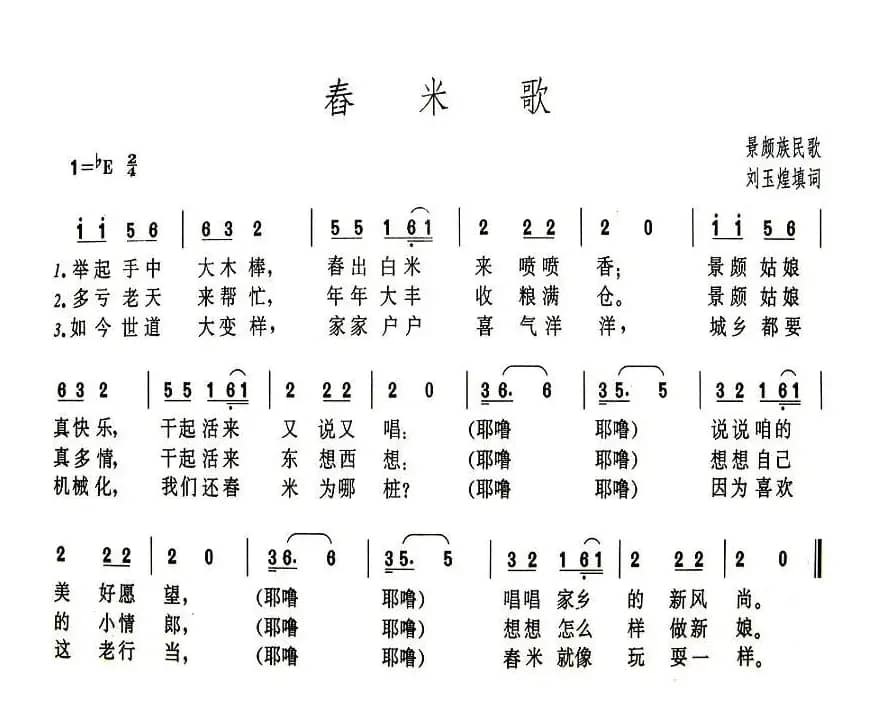 舂米歌
景颇族民歌
1=♭E 2/4
刘玉煌填词
i i 5 6 | 6 3 2 | 5 5 1 6 1 | 2 2 2 | 2 0 | i i 5 6 |
1.举起手中 大木棒, 舂出白米 来 喷喷 香; 景颇姑娘
2.多亏老天 来帮忙, 年年大丰 收 粮满 仓。 景颇姑娘
3.如今世道 大变样, 家家户户 喜 气洋 洋, 城乡都要
6 3 2 | 5 5 1 6 1 | 2 2 2 | 2 0 | 3 6. 6 | 3 5. 5 | 3 2 1 6 1 |
真快乐, 干起活来 又 说又 唱; (耶噜 耶噜) 说说咱的
真多情, 干起活来 东 想西 想; (耶噜 耶噜) 想想自己
机械化, 我们还舂 米 为哪 桩? (耶噜 耶噜) 因为喜欢
2 2 2 | 2 0 | 3 6. 6 | 3 5. 5 | 3 2 1 6 1 | 2 2 2 | 2 0 ‖
美 好愿 望, (耶噜 耶噜) 唱唱家乡 的 新风 尚。
的 小情 郎, (耶噜 耶噜) 想想怎么 样 做新 娘。
这 老行 当, (耶噜 耶噜) 舂米就像 玩 耍一 样。